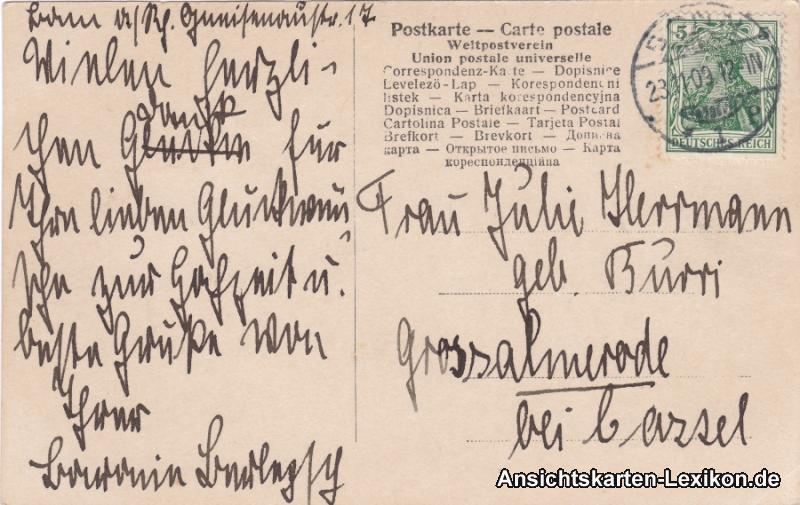 Bonn a/Rh. Gneisenaustr. 17
Vielen herzli-
chen Dank für
Ihre lieben Glückwün
sche zur Hochzeit u.
beste Grüße von
Ihrer
Baronin Berlepsch
Postkarte — Carte postale
Weltpostverein
Union postale universelle
Correspondenz-Karte — Dopisnice
Levelező-Lap — Korespondent ni
listek — Karta korespondencyjna
Dopisnica — Briefkaart — Postcard
Cartolina Postale — Tarjeta Postal
Brefkort — Brevkort — Дописна
карта — Открытое письмо — Карта
кореспонденцiйна
5
DEUTSCHES REICH
Frau Julie Herrmann
geb. Burri
Grossalmerode
bei Cassel
Ansichtskarten-Lexikon.de